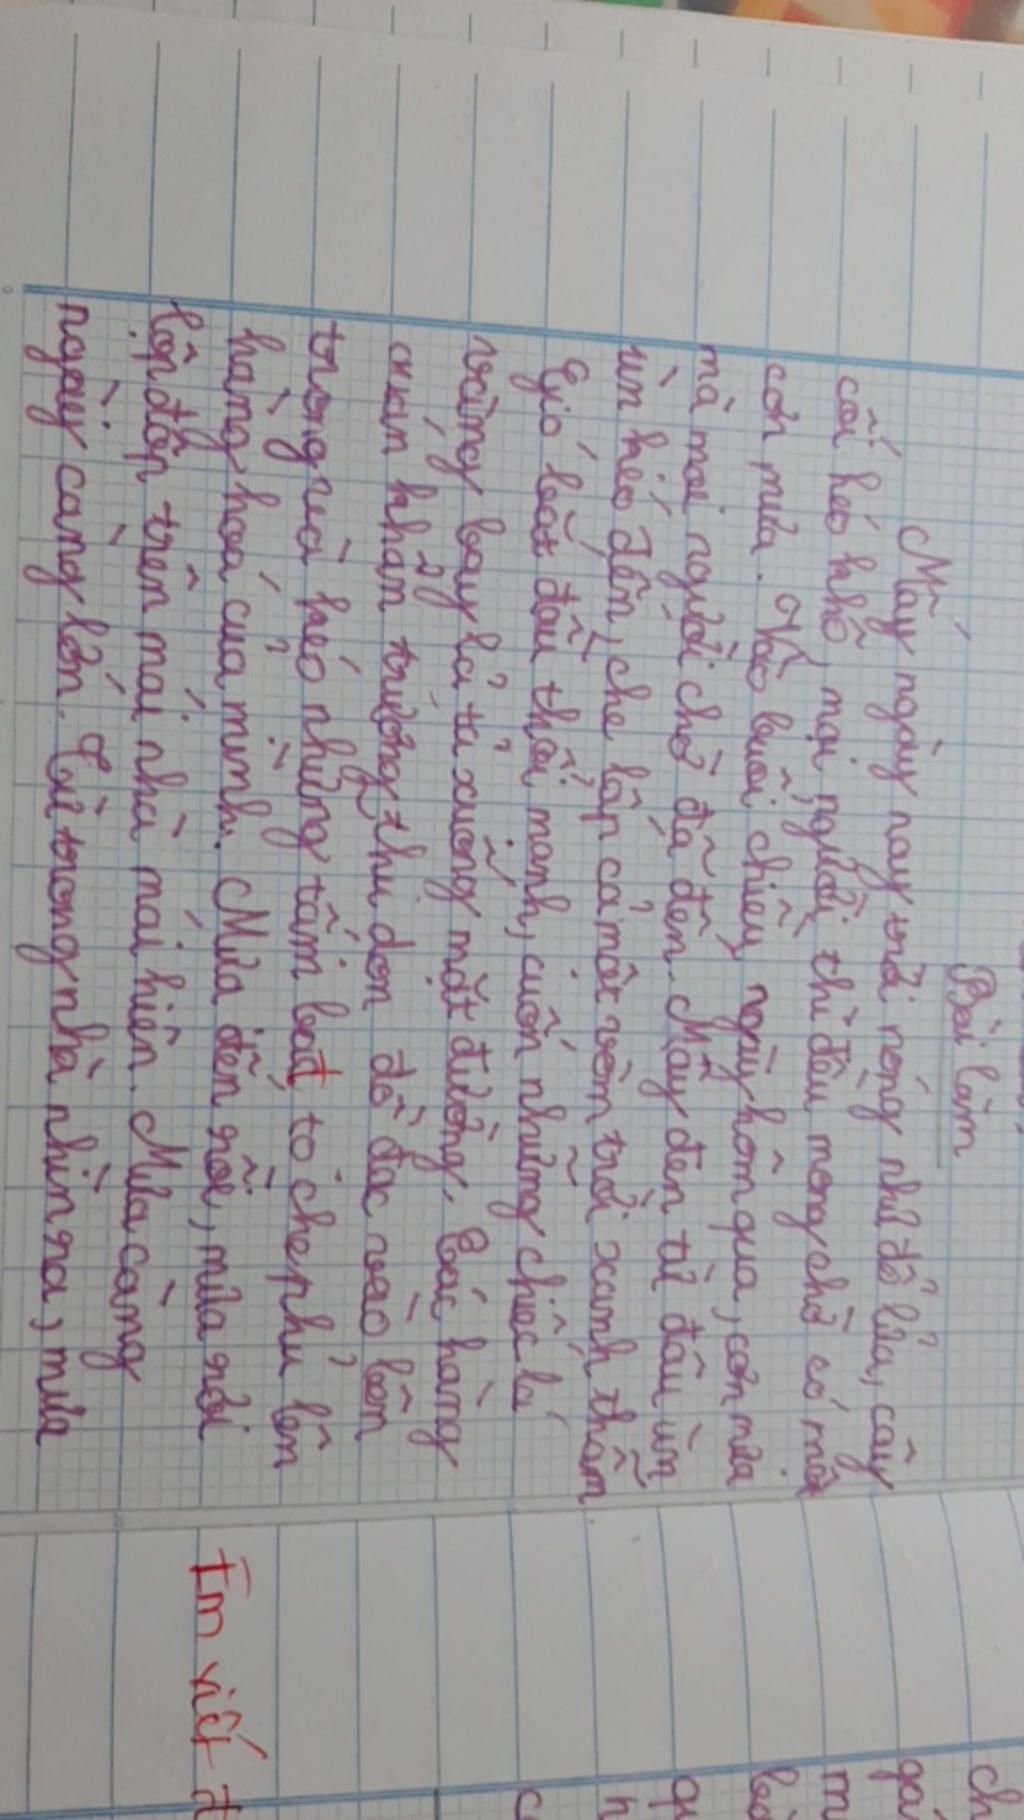 Bài làm
Mấy ngày nay trời nóng như đổ lửa, cây
cối héo khô, mọi người thì đều mong chờ có một
cơn mưa. Vào buổi chiều ngày hôm qua, cơn mưa
mà mọi người chờ đã đến. Mây đen từ đâu ùn
ùn kéo đến, che lấp cả một vòm trời xanh thẳm
Gió bắt đầu thổi mạnh, cuốn những chiếc lá
vàng bay lả tả xuống mặt đường. Các hàng
quán khẩn trương thu dọn đồ đạc vào bên
trong rồi kéo những tấm bạt to che phủ lên
hàng hoá của mình. Mưa đến rồi, mưa rơi
lộp độp trên mái nhà mái hiên. Mưa càng
ngày càng lớn. Từ trong nhà nhìn ra, mưa
Em viết